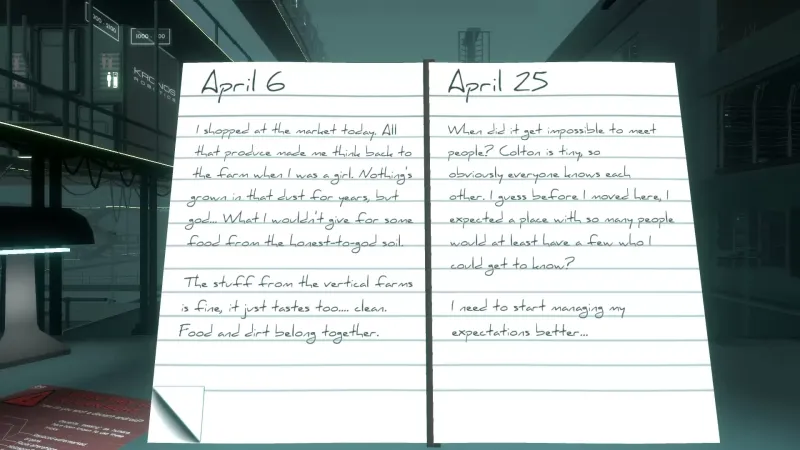 KRONOS
ROBOTICS
April 6
I shopped at the market today. All
that produce made me think back to
the farm when I was a girl. Nothing's
grown in that dust for years, but
god... What I wouldn't give for some
food from the honest-to-god soil.
The stuff from the vertical farms
is fine, it just tastes too.... clean.
Food and dirt belong together.
April 25
When did it get impossible to meet
people? Colton is tiny, so
obviously everyone knows each
other. I guess before I moved here, I
expected a place with so many people
would at least have a few who I
could get to know?
I need to start managing my
expectations better...